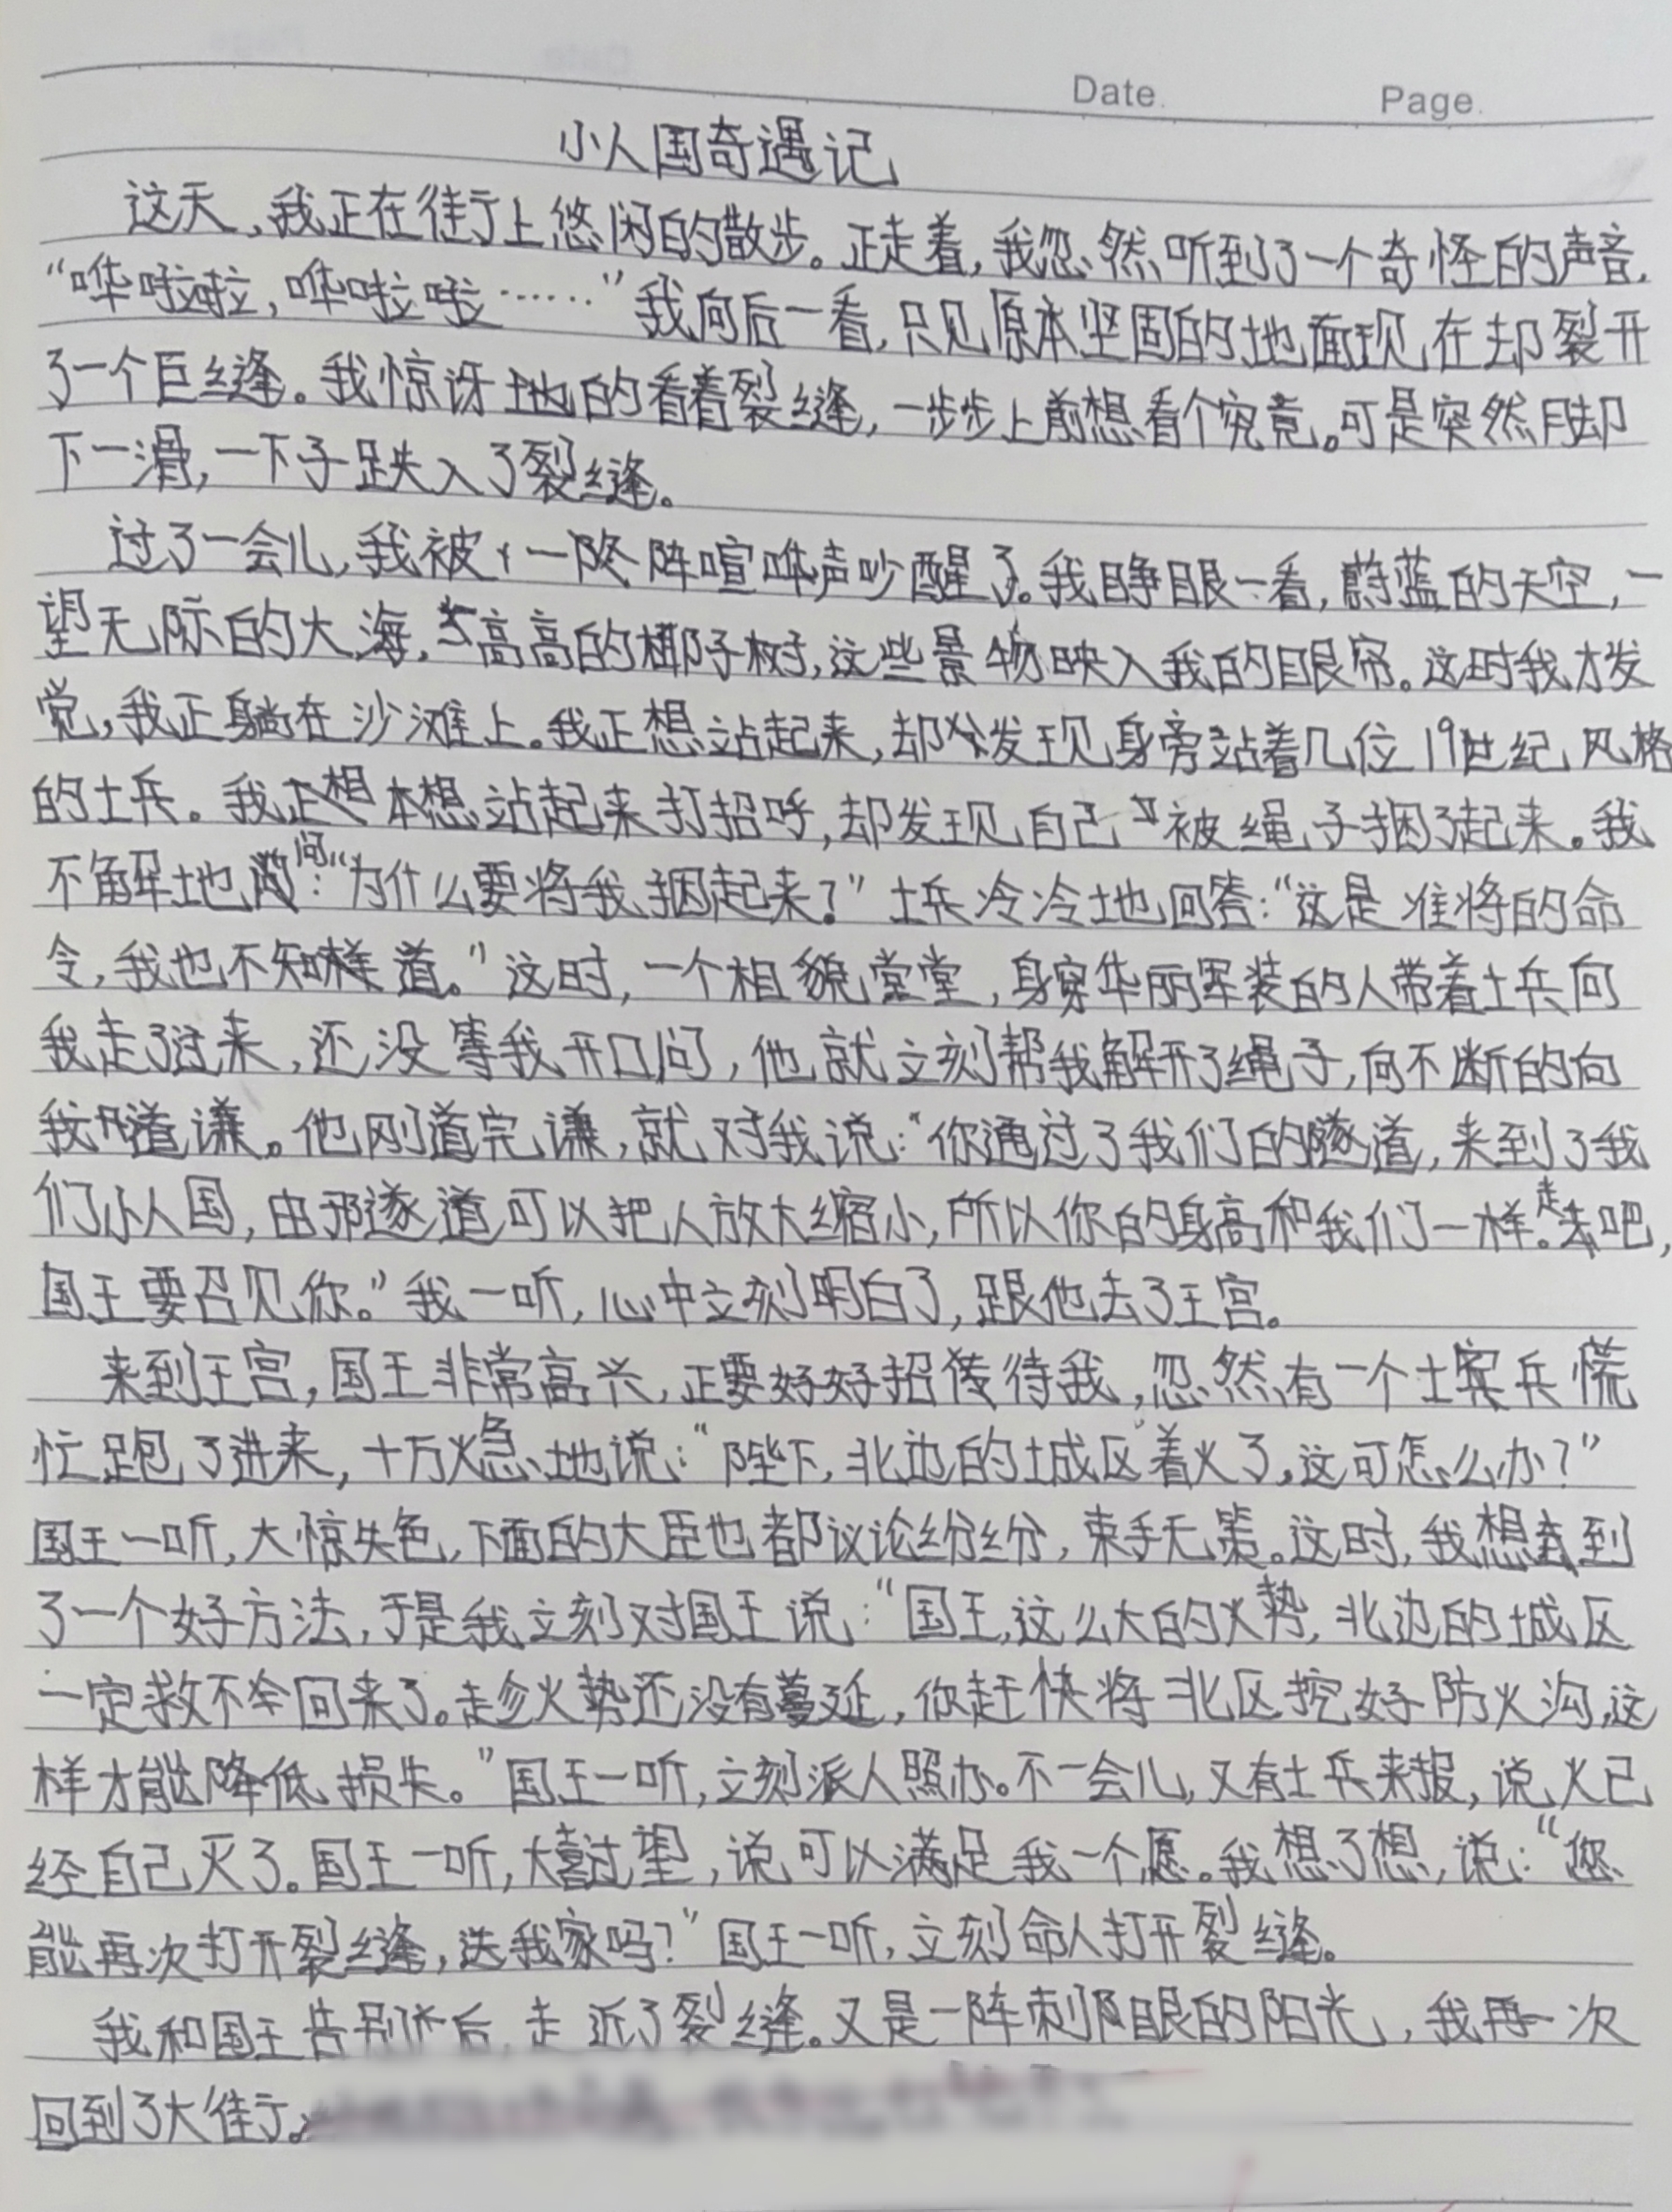 Date.
Page.
小人国奇遇记
这天,我正在街上悠闲的散步。正走着,我忽然听到了一个奇怪的声音,
“哗啦啦,哗啦啦……”我向后一看,只见原本坚固的地面现在却裂开
了一个巨缝。我惊讶地的看着裂缝,一步步上前想看个究竟。可是突然脚
下一滑,一下子跌入了裂缝。
过了一会儿,我被一阵喧哗声吵醒了。我睁眼一看,蔚蓝的天空,一
望无际的大海,高高的椰子树,这些景物映入我的眼帘。这时我才发
觉,我正躺在沙滩上。我正想站起来,却发现身旁站着几位19世纪风格
的士兵。我本想站起来打招呼,却发现自己被绳子捆了起来。我
不解地问:“为什么要将我捆起来?”士兵冷冷地回答:“这是准将的命
令,我也不知道。”这时,一个相貌堂堂,身穿华丽军装的人带着士兵向
我走了过来,还没等我开口问,他就立刻帮我解开了绳子,向不断的向
我道谦。他刚道完谦,就对我说:“你通过了我们的隧道,来到了我
们小人国,由那遂道可以把人放大缩小,所以你的身高和我们一样。走吧,
国王要召见你。”我一听,心中立刻明白了,跟他去了王宫。
来到王宫,国王非常高兴,正要好好招待我,忽然有一个士兵慌
忙跑了进来,十万火急地说:“陛下,北边的城区着火了,这可怎么办?”
国王一听,大惊失色,下面的大臣也都议论纷纷,束手无策。这时,我想到
了一个好方法,于是我立刻对国王说:“国王,这么大的火势,北边的城区
一定救不回来了。趁火势还没有蔓延,你赶快将北区挖好防火沟,这
样才能降低损失。”国王一听,立刻派人照办。不一会儿,又有士兵来报,说火已
经自己灭了。国王一听,大喜过望,说可以满足我一个愿。我想了想,说:“您
能再次打开裂缝,送我家吗?”国王一听,立刻命人打开裂缝。
我和国王告别后,走近了裂缝。又是一阵刺眼的阳光,我再一次
回到了大街。